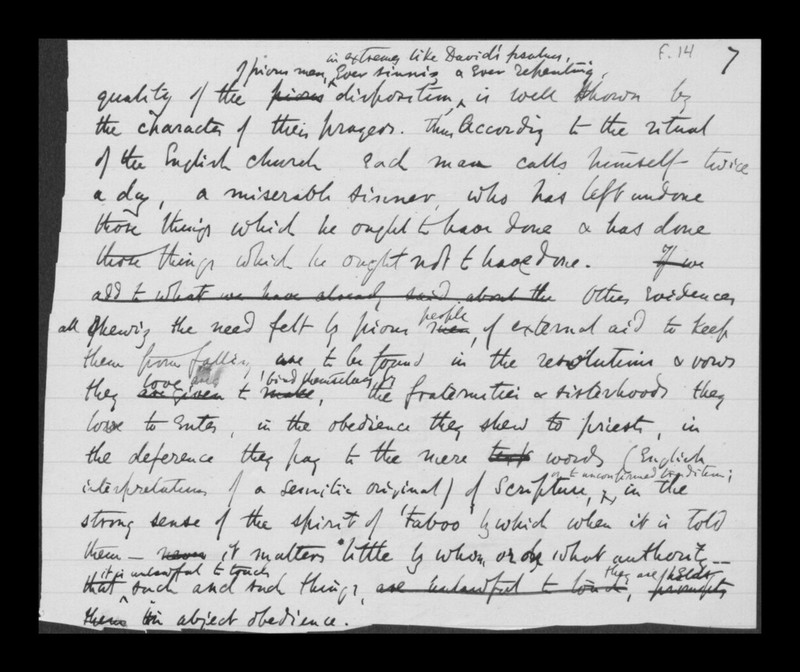 f. 14 7
in extremes like David's psalms,
of pious men, Ever sinning & Ever repenting,
quality of the pious disposition, is well shown by
the character of their prayers. Thus According to the ritual
of the English church Each man calls himself twice
a day, a miserable sinner, who has left undone
those things which he ought to have done & has done
those things which he ought not to have done. If we
add to what we have already said about the Other Evidences
people
all shewing the need felt by pious men, of external aid to keep
them from falling are to be found in the resolutions & vows
love and bind themselves by
they are given to make, the fraternities & sisterhoods they
love to Enter, in the obedience they shew to priests, in
the deference they pay to the mere text words (English
or to unconfirmed tradition;
interpretations of a Semitic original) of Scripture, in the
strong sense of the spirit of 'Taboo' by which when it is told
them – never it matters little by whom or on what authority –
it is unlawful to touch they are held
that such and such things, are unlawful to touch, prompts
them in abject obedience.